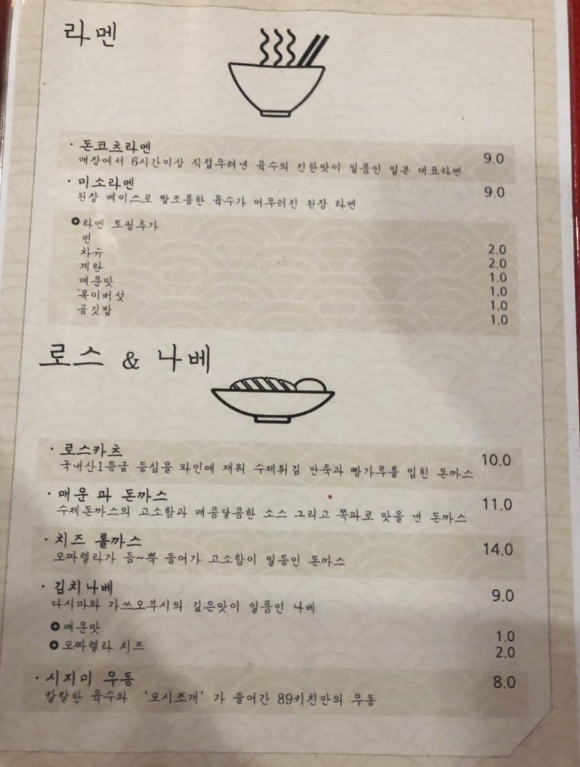 라멘
· 돈코츠라멘 9.0
매장에서 6시간이상 직접우려낸 육수의 진한맛이 일품인 일본 대표라멘
· 미소라멘 9.0
된장 베이스로 짭조름한 육수가 어우러진 된장 라멘
라멘 토핑추가
면 2.0
차슈 2.0
계란 1.0
매운맛 1.0
목이버섯 1.0
공깃밥 1.0
로스 & 나베
· 로스카츠 10.0
국내산1등급 등심을 와인에 재워 수제튀김 반죽과 빵가루를 입힌 돈까스
· 매운 파 돈까스 11.0
수제돈까스의 고소함과 매콤달콤한 소스 그리고 쪽파로 맛을 낸 돈까스
· 치즈 롤까스 14.0
모짜렐라가 듬~뿍 들어가 고소함이 일등인 돈까스
· 김치나베 9.0
다시마와 가쓰오부시의 깊은맛이 일품인 나베
매운맛 1.0
모짜렐라 치즈 2.0
· 시지미 우동 8.0
칼칼한 육수와 '모시조개'가 들어간 89키친만의 우동